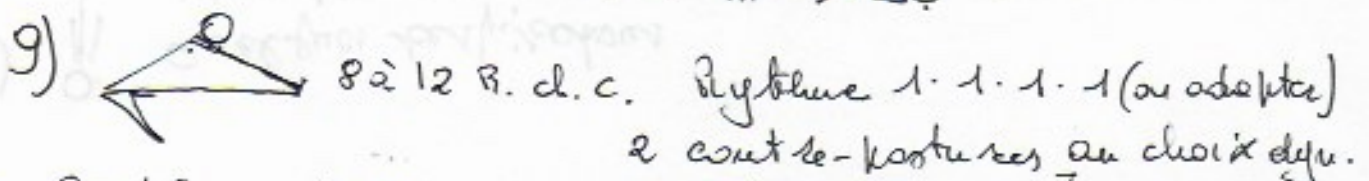 9) 8 à 12 R. ch. c. Rythme 1. 1. 1. 1 (ou adapter)
2 contre-postures au choix dyn.